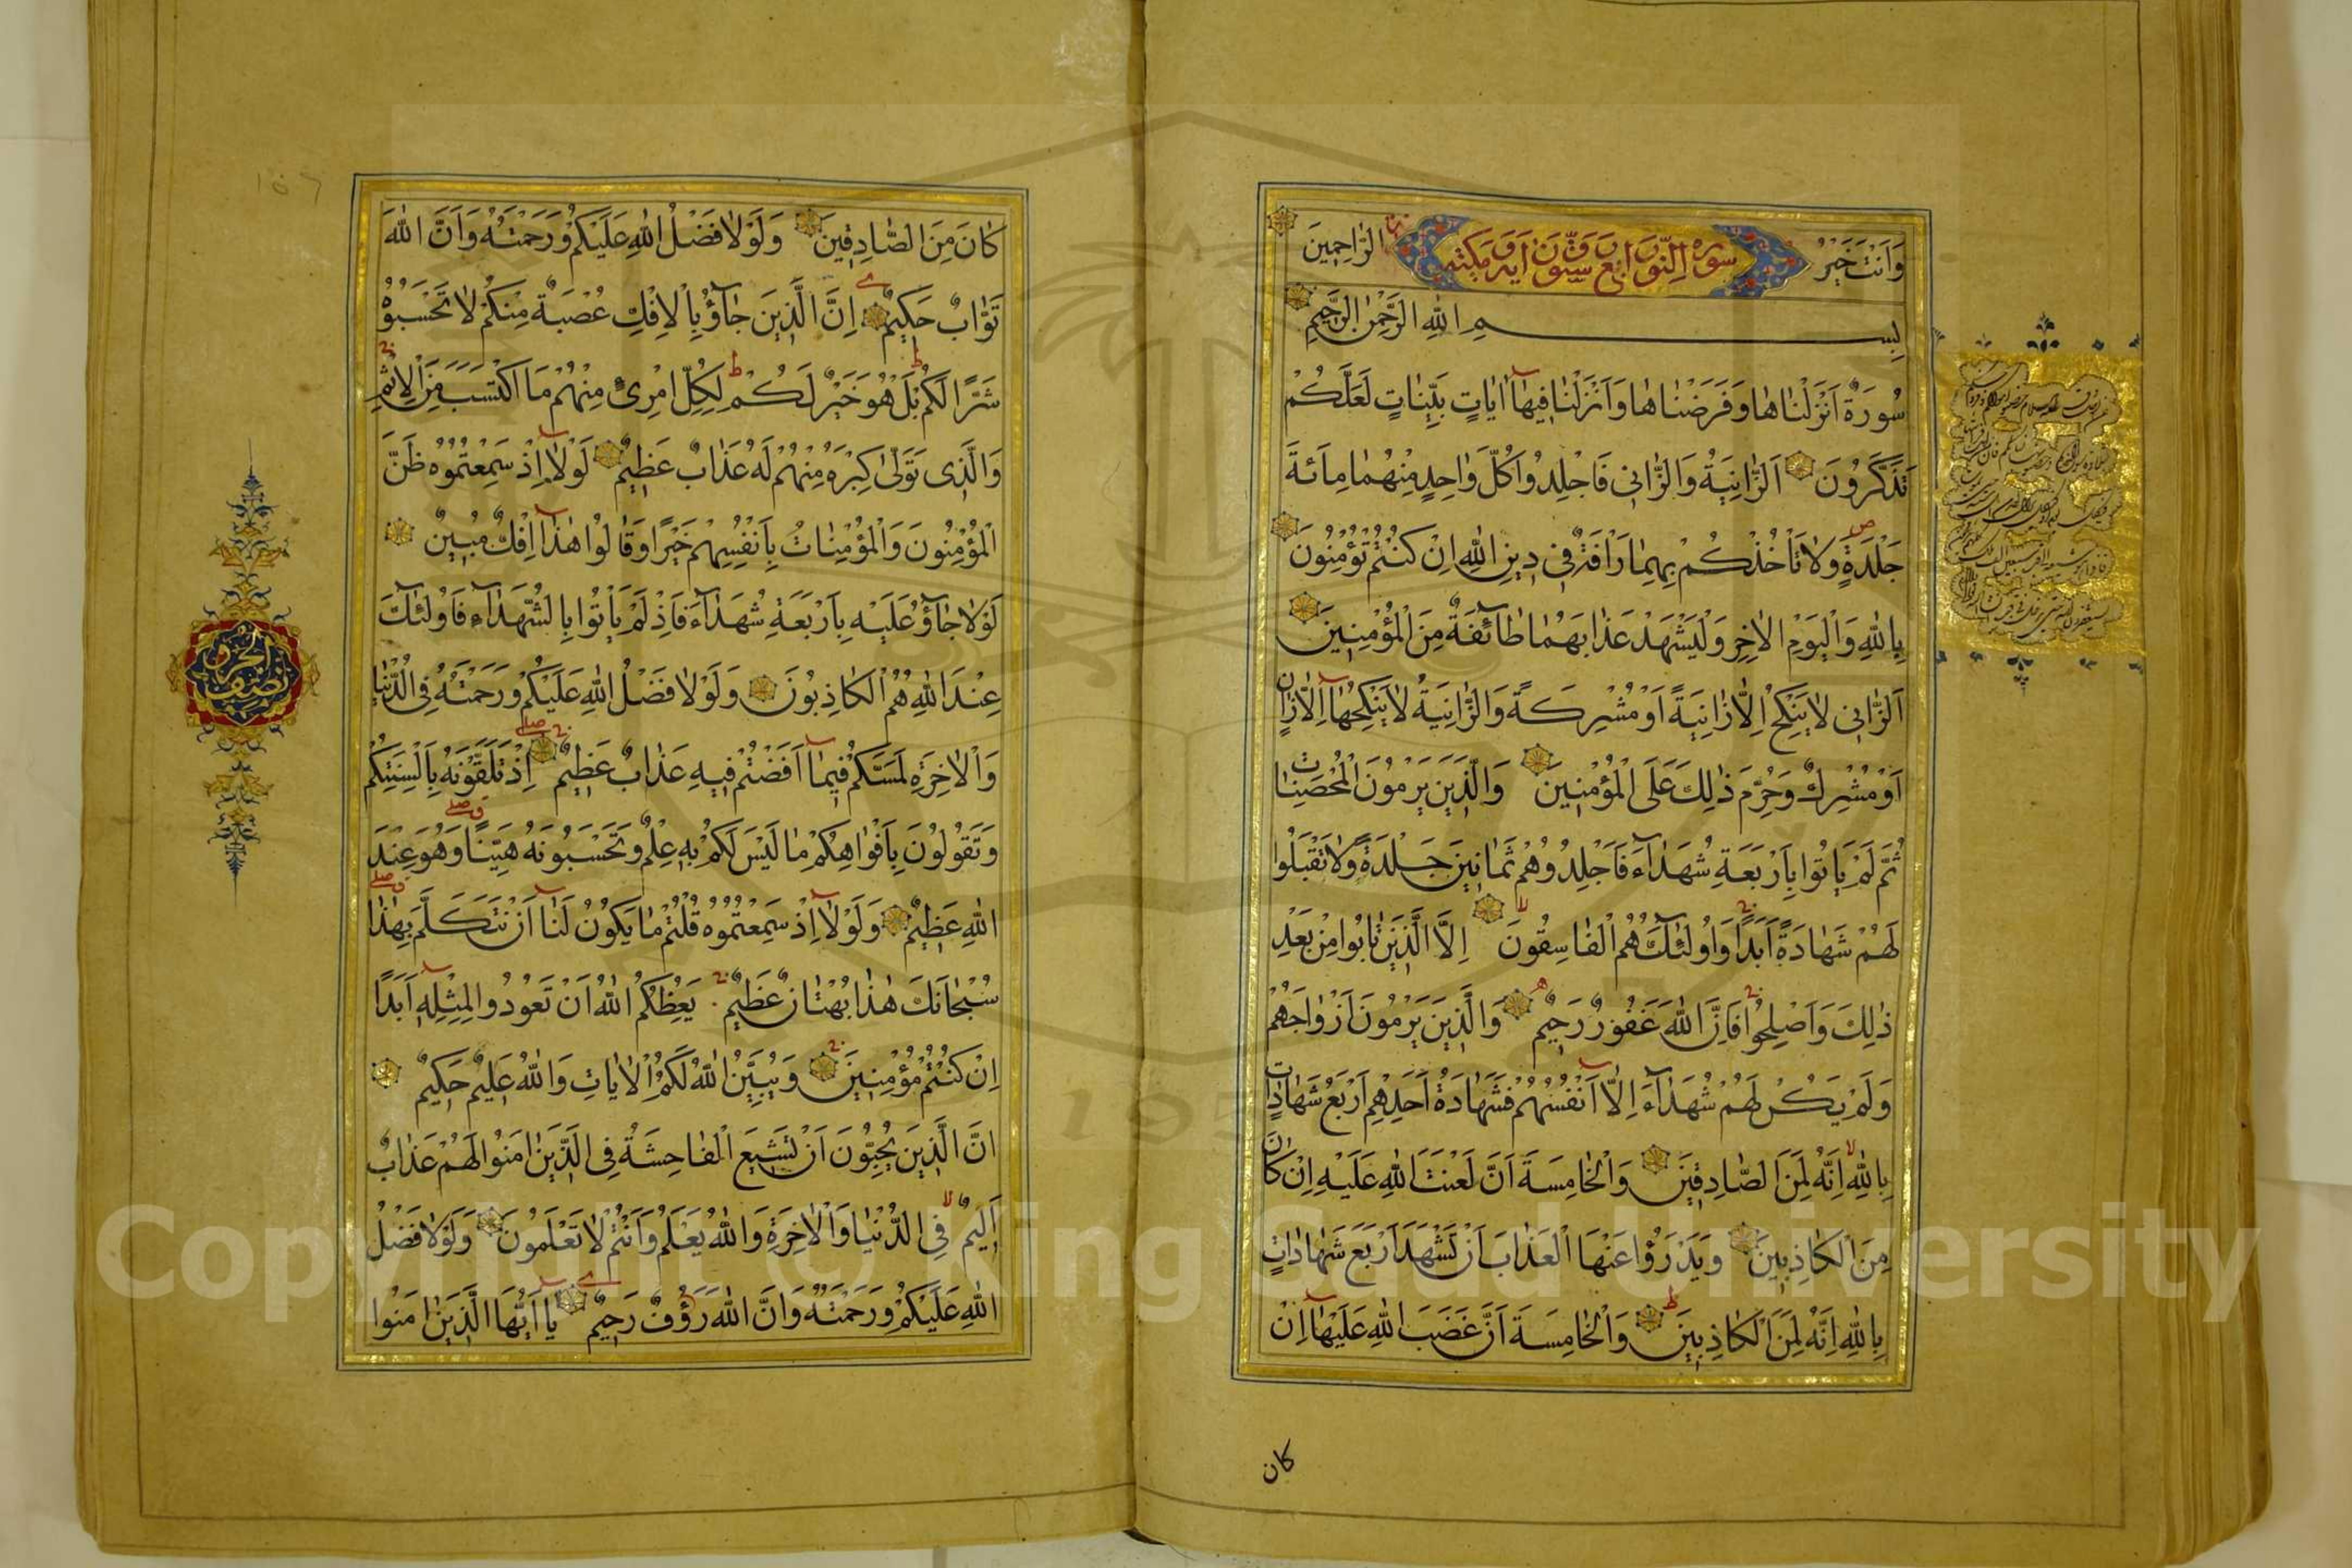 وَاَنْتَ خَيْرُ الرَّاحِمِينَ
سورة النور اربع وستون اية مكية
بِسْمِ اللهِ الرَّحْمٰنِ الرَّحِيمِ
سُورَةٌ اَنْزَلْنَاهَا وَفَرَضْنَاهَا وَاَنْزَلْنَا فِيهَا اٰيَاتٍ بَيِّنَاتٍ لَعَلَّكُمْ
تَذَكَّرُونَ اَلزَّانِيَةُ وَالزَّانِى فَاجْلِدُوا كُلَّ وَاحِدٍ مِنْهُمَا مِائَةَ
جَلْدَةٍ وَلَا تَأْخُذْكُمْ بِهِمَا رَأْفَةٌ فِى دِينِ اللهِ اِنْ كُنْتُمْ تُؤْمِنُونَ
بِاللهِ وَالْيَوْمِ الْاٰخِرِ وَلْيَشْهَدْ عَذَابَهُمَا طَائِفَةٌ مِنَ الْمُؤْمِنِينَ
اَلزَّانِى لَا يَنْكِحُ اِلَّا زَانِيَةً اَوْ مُشْرِكَةً وَالزَّانِيَةُ لَا يَنْكِحُهَا اِلَّا زَانٍ
اَوْ مُشْرِكٌ وَحُرِّمَ ذٰلِكَ عَلَى الْمُؤْمِنِينَ وَالَّذِينَ يَرْمُونَ الْمُحْصَنَاتِ
ثُمَّ لَمْ يَأْتُوا بِاَرْبَعَةِ شُهَدَاءَ فَاجْلِدُوهُمْ ثَمَانِينَ جَلْدَةً وَلَا تَقْبَلُوا
لَهُمْ شَهَادَةً اَبَدًا وَاُولٰئِكَ هُمُ الْفَاسِقُونَ اِلَّا الَّذِينَ تَابُوا مِنْ بَعْدِ
ذٰلِكَ وَاَصْلَحُوا فَاِنَّ اللهَ غَفُورٌ رَحِيمٌ وَالَّذِينَ يَرْمُونَ اَزْوَاجَهُمْ
وَلَمْ يَكُنْ لَهُمْ شُهَدَاءُ اِلَّا اَنْفُسُهُمْ فَشَهَادَةُ اَحَدِهِمْ اَرْبَعُ شَهَادَاتٍ
بِاللهِ اِنَّهُ لَمِنَ الصَّادِقِينَ وَالْخَامِسَةُ اَنَّ لَعْنَتَ اللهِ عَلَيْهِ اِنْ كَانَ
مِنَ الْكَاذِبِينَ وَيَدْرَؤُا عَنْهَا الْعَذَابَ اَنْ تَشْهَدَ اَرْبَعَ شَهَادَاتٍ
بِاللهِ اِنَّهُ لَمِنَ الْكَاذِبِينَ وَالْخَامِسَةَ اَنَّ غَضَبَ اللهِ عَلَيْهَا اِنْ
كان
كَانَ مِنَ الصَّادِقِينَ وَلَوْلَا فَضْلُ اللهِ عَلَيْكُمْ وَرَحْمَتُهُ وَاَنَّ اللهَ
تَوَّابٌ حَكِيمٌ اِنَّ الَّذِينَ جَاؤُ بِالْاِفْكِ عُصْبَةٌ مِنْكُمْ لَا تَحْسَبُوهُ
شَرًّا لَكُمْ بَلْ هُوَ خَيْرٌ لَكُمْ لِكُلِّ امْرِئٍ مِنْهُمْ مَا اكْتَسَبَ مِنَ الْاِثْمِ
وَالَّذِى تَوَلّٰى كِبْرَهُ مِنْهُمْ لَهُ عَذَابٌ عَظِيمٌ لَوْلَا اِذْ سَمِعْتُمُوهُ ظَنَّ
الْمُؤْمِنُونَ وَالْمُؤْمِنَاتُ بِاَنْفُسِهِمْ خَيْرًا وَقَالُوا هٰذَا اِفْكٌ مُبِينٌ
لَوْلَا جَاؤُ عَلَيْهِ بِاَرْبَعَةِ شُهَدَاءَ فَاِذْ لَمْ يَأْتُوا بِالشُّهَدَاءِ فَاُولٰئِكَ
عِنْدَ اللهِ هُمُ الْكَاذِبُونَ وَلَوْلَا فَضْلُ اللهِ عَلَيْكُمْ وَرَحْمَتُهُ فِى الدُّنْيَا
وَالْاٰخِرَةِ لَمَسَّكُمْ فِيمَا اَفَضْتُمْ فِيهِ عَذَابٌ عَظِيمٌ اِذْ تَلَقَّوْنَهُ بِاَلْسِنَتِكُمْ
وَتَقُولُونَ بِاَفْوَاهِكُمْ مَا لَيْسَ لَكُمْ بِهِ عِلْمٌ وَتَحْسَبُونَهُ هَيِّنًا وَهُوَ عِنْدَ
اللهِ عَظِيمٌ وَلَوْلَا اِذْ سَمِعْتُمُوهُ قُلْتُمْ مَا يَكُونُ لَنَا اَنْ نَتَكَلَّمَ بِهٰذَا
سُبْحَانَكَ هٰذَا بُهْتَانٌ عَظِيمٌ يَعِظُكُمُ اللهُ اَنْ تَعُودُوا لِمِثْلِهِ اَبَدًا
اِنْ كُنْتُمْ مُؤْمِنِينَ وَيُبَيِّنُ اللهُ لَكُمُ الْاٰيَاتِ وَاللهُ عَلِيمٌ حَكِيمٌ
اِنَّ الَّذِينَ يُحِبُّونَ اَنْ تَشِيعَ الْفَاحِشَةُ فِى الَّذِينَ اٰمَنُوا لَهُمْ عَذَابٌ
اَلِيمٌ فِى الدُّنْيَا وَالْاٰخِرَةِ وَاللهُ يَعْلَمُ وَاَنْتُمْ لَا تَعْلَمُونَ وَلَوْلَا فَضْلُ
اللهِ عَلَيْكُمْ وَرَحْمَتُهُ وَاَنَّ اللهَ رَؤُفٌ رَحِيمٌ يَا اَيُّهَا الَّذِينَ اٰمَنُوا
نصف الحزب
Copyright © King Saud University